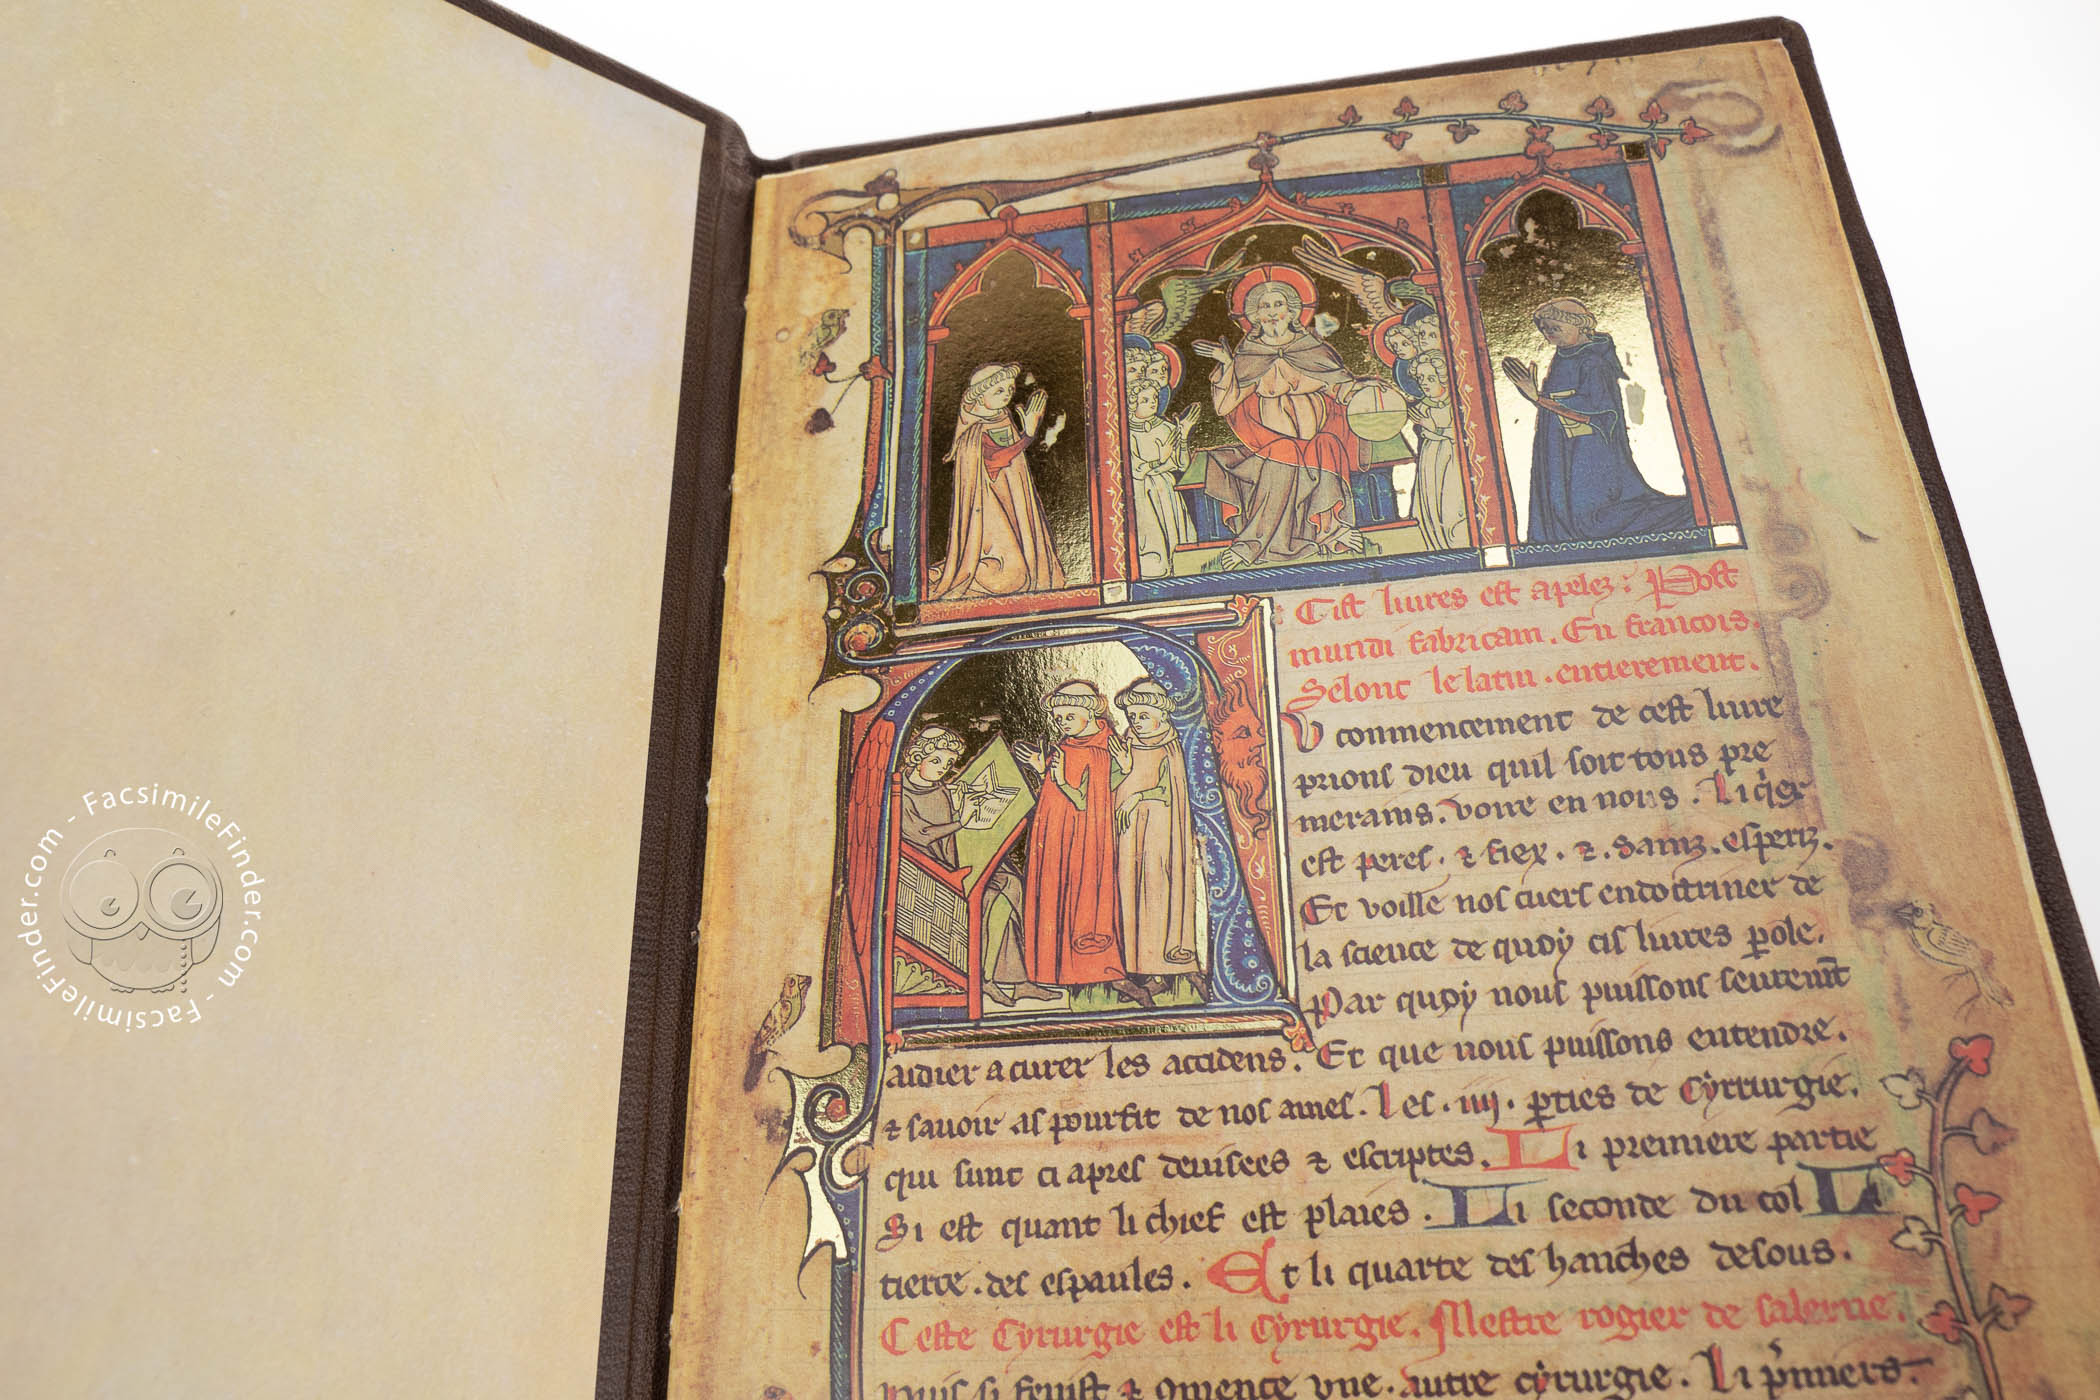 Cist liures est apelez: Post
mundi fabricam. En francois.
Selonc le latin. entierement.
U conmencement de cest liure
prions dieu quil soit tous pre
merains. voire en nous. Li q̇er
est peres. ⁊ fiex. ⁊. sainz. esperiz.
Et voille nos cuers endoctriner de
la science de quoy cis liures ꝑole.
Par quoy nous puissons seurem̄t
aidier a curer les accidens. Et que nous puissons entendre.
⁊ sauoir as pourfit de nos ames. Les. iiij. ꝑties de Cyrurgie.
qui sunt ci apres deuisees ⁊ escriptes. Li premiere partie
Si est quant li chief est plaies. Li seconde du col Le
tierce. des espaules. Et li quarte des hanches desous.
Ceste Cyrurgie est li Cyrurgie. Mestre rogier de salerne.
puis si fenist ⁊ ɔmence vne. autre cyrurgie. Li p̃miers
FacsimileFinder.com - FacsimileFinder.com - FacsimileFinder.com